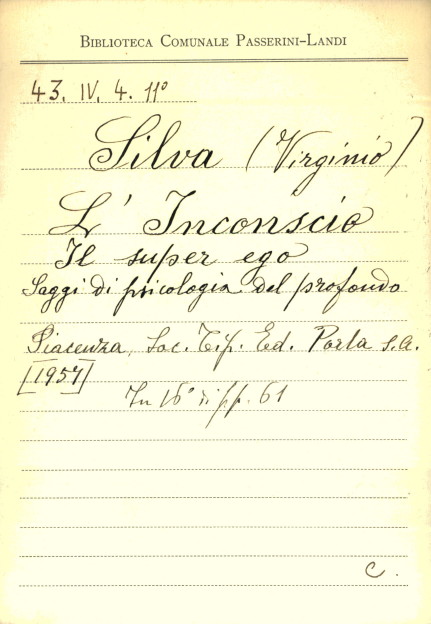 BIBLIOTECA COMUNALE PASSERINI-LANDI
43. IV. 4. 11°
Silva (Virginio)
L' Inconscio
Il super ego
Saggi di psicologia del profondo
Piacenza, Soc. Tip. Ed. Porta s.a.
[1957]
In 16° di pp. 61
C.